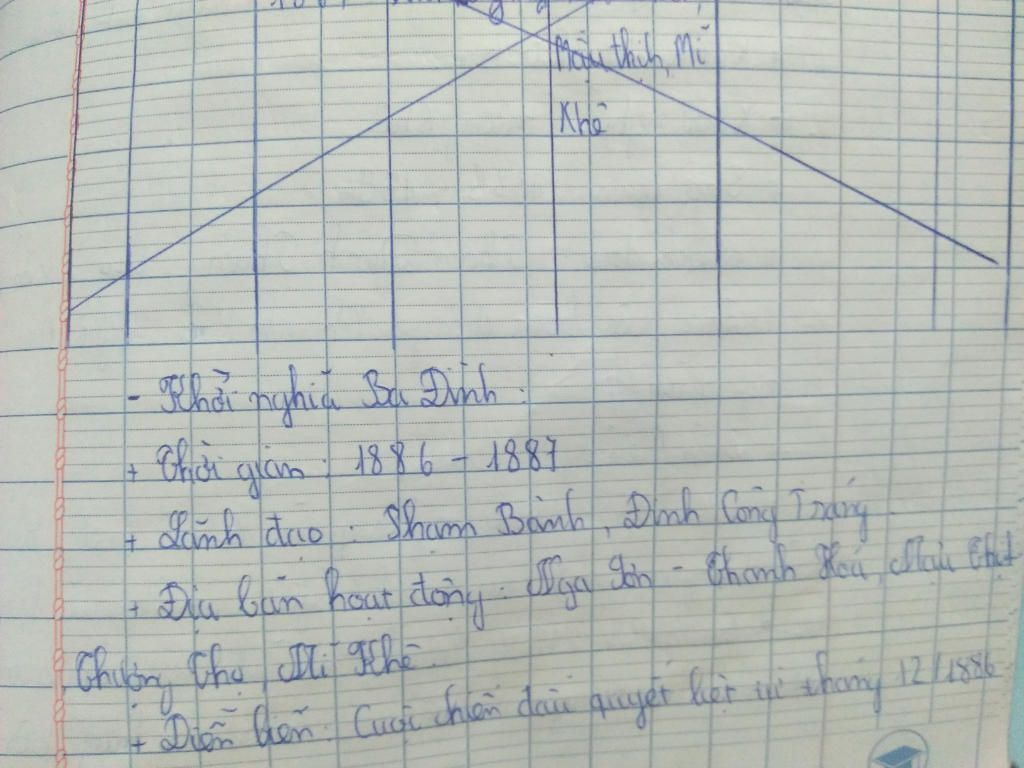 Mậu thịnh, Mĩ
Khê
- Khởi nghĩa Ba Đình :
+ Thời gian : 1886 - 1887
+ Lãnh đạo : Phạm Bành, Đinh Công Tráng
+ Địa bàn hoạt động : Nga Sơn - Thanh Hoá, Mậu Thịt
Thượng Thọ Mĩ Khê.
+ Diễn biến : Cuộc chiến đấu quyết liệt từ tháng 12/1886